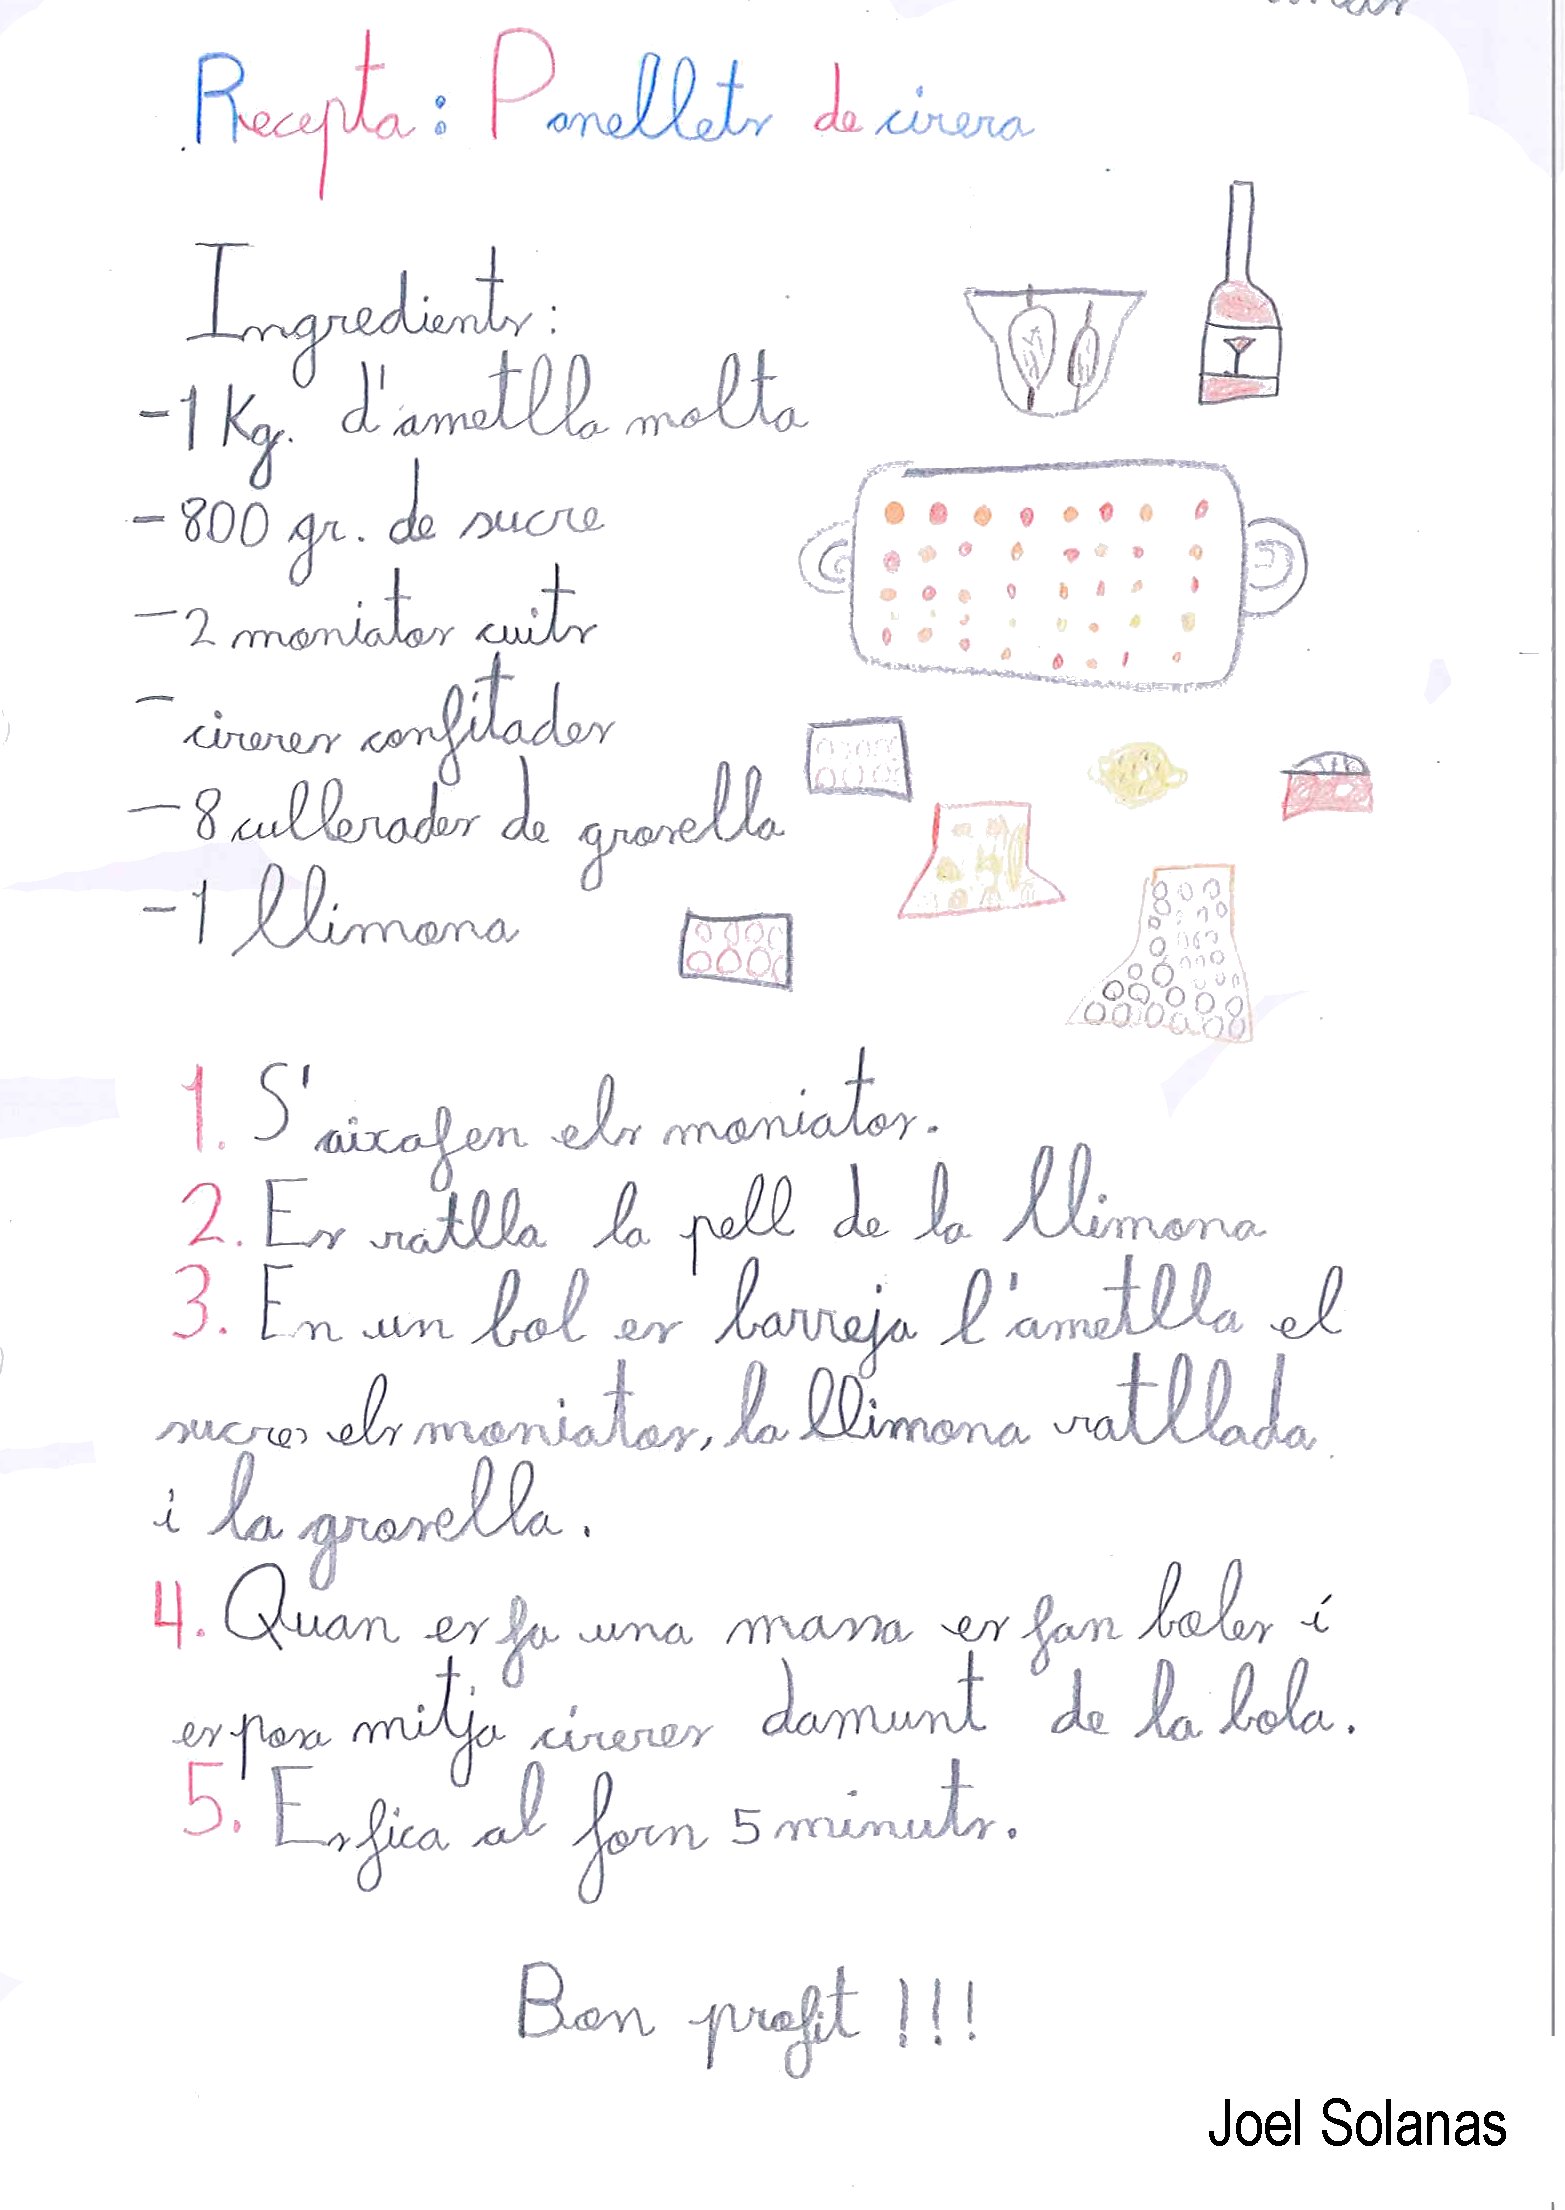 Recepta: Panellets de cirera
Ingredients:
-1 Kg. d'ametlla molta
-800 gr. de sucre
-2 moniatos cuits
-cireres confitades
-8 cullerades de grosella
-1 llimona
1. S'aixafen els moniatos.
2. Es ratlla la pell de la llimona
3. En un bol es barreja l'ametlla el
sucre, els moniatos, la llimona ratllada
i la grosella.
4. Quan es fa una massa es fan boles i
es posa mitja cireres damunt de la bola.
5. Es fica al forn 5 minuts.
Bon profit !!!
Joel Solanas